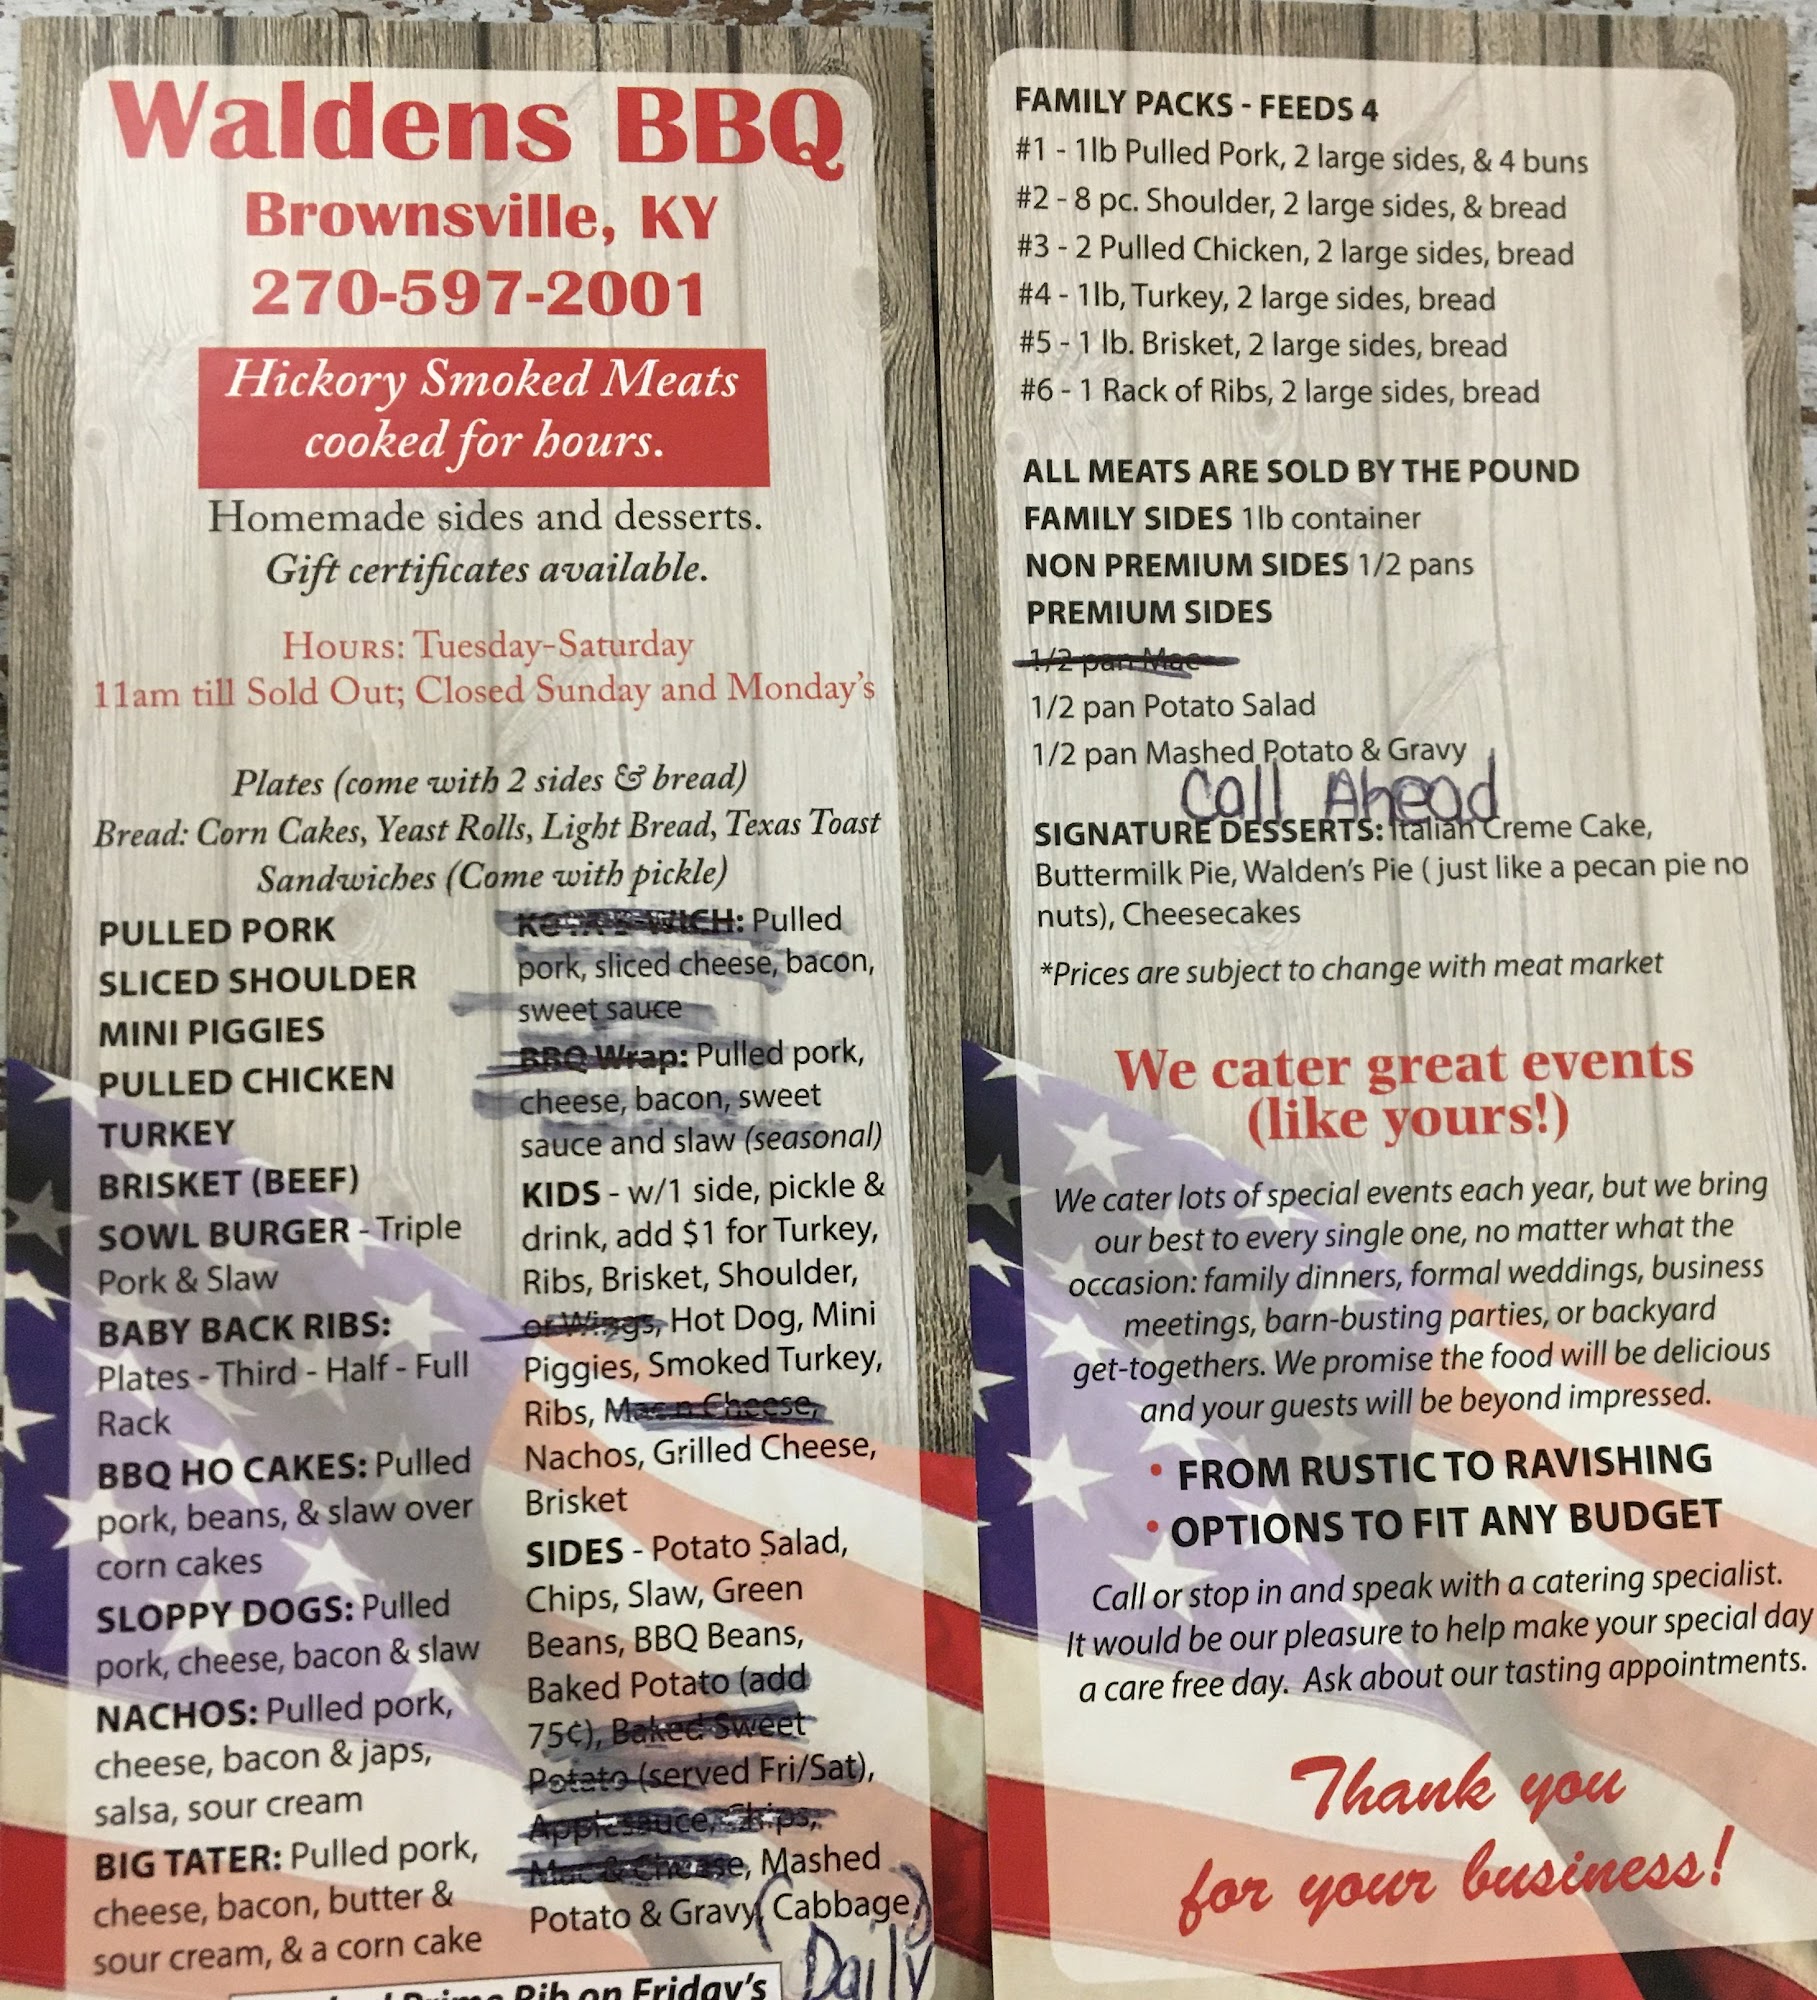 Waldens BBQ
Brownsville, KY
270-597-2001
Hickory Smoked Meats
cooked for hours.
Homemade sides and desserts.
Gift certificates available.
Hours: Tuesday-Saturday
11am till Sold Out; Closed Sunday and Monday's
Plates (come with 2 sides & bread)
Bread: Corn Cakes, Yeast Rolls, Light Bread, Texas Toast
Sandwiches (Come with pickle)
PULLED PORK
SLICED SHOULDER
MINI PIGGIES
PULLED CHICKEN
TURKEY
BRISKET (BEEF)
SOWL BURGER - Triple
Pork & Slaw
BABY BACK RIBS:
Plates - Third - Half - Full
Rack
BBQ HO CAKES: Pulled
pork, beans, & slaw over
corn cakes
SLOPPY DOGS: Pulled
pork, cheese, bacon & slaw
NACHOS: Pulled pork,
cheese, bacon & japs,
salsa, sour cream
BIG TATER: Pulled pork,
cheese, bacon, butter &
sour cream, & a corn cake
Pulled
pork, sliced cheese, bacon,
sweet sauce
BBQ Wrap: Pulled pork,
cheese, bacon, sweet
sauce and slaw (seasonal)
KIDS - w/1 side, pickle &
drink, add $1 for Turkey,
Ribs, Brisket, Shoulder,
or Wings, Hot Dog, Mini
Piggies, Smoked Turkey,
Ribs, Mac n Cheese,
Nachos, Grilled Cheese,
Brisket
SIDES - Potato Salad,
Chips, Slaw, Green
Beans, BBQ Beans,
Baked Potato (add
75¢), Baked Sweet
Potato (served Fri/Sat),
Applesauce, Chips,
Mac & Cheese, Mashed
Potato & Gravy (Cabbage)
Daily
Prime Rib on Friday's
FAMILY PACKS - FEEDS 4
#1 - 1lb Pulled Pork, 2 large sides, & 4 buns
#2 - 8 pc. Shoulder, 2 large sides, & bread
#3 - 2 Pulled Chicken, 2 large sides, bread
#4 - 1lb, Turkey, 2 large sides, bread
#5 - 1 lb. Brisket, 2 large sides, bread
#6 - 1 Rack of Ribs, 2 large sides, bread
ALL MEATS ARE SOLD BY THE POUND
FAMILY SIDES 1lb container
NON PREMIUM SIDES 1/2 pans
PREMIUM SIDES
1/2 pan Mac
1/2 pan Potato Salad
1/2 pan Mashed Potato & Gravy
Call Ahead
SIGNATURE DESSERTS: Italian Creme Cake,
Buttermilk Pie, Walden's Pie ( just like a pecan pie no
nuts), Cheesecakes
*Prices are subject to change with meat market
We cater great events
(like yours!)
We cater lots of special events each year, but we bring
our best to every single one, no matter what the
occasion: family dinners, formal weddings, business
meetings, barn-busting parties, or backyard
get-togethers. We promise the food will be delicious
and your guests will be beyond impressed.
• FROM RUSTIC TO RAVISHING
• OPTIONS TO FIT ANY BUDGET
Call or stop in and speak with a catering specialist.
It would be our pleasure to help make your special day
a care free day. Ask about our tasting appointments.
Thank you
for your business!